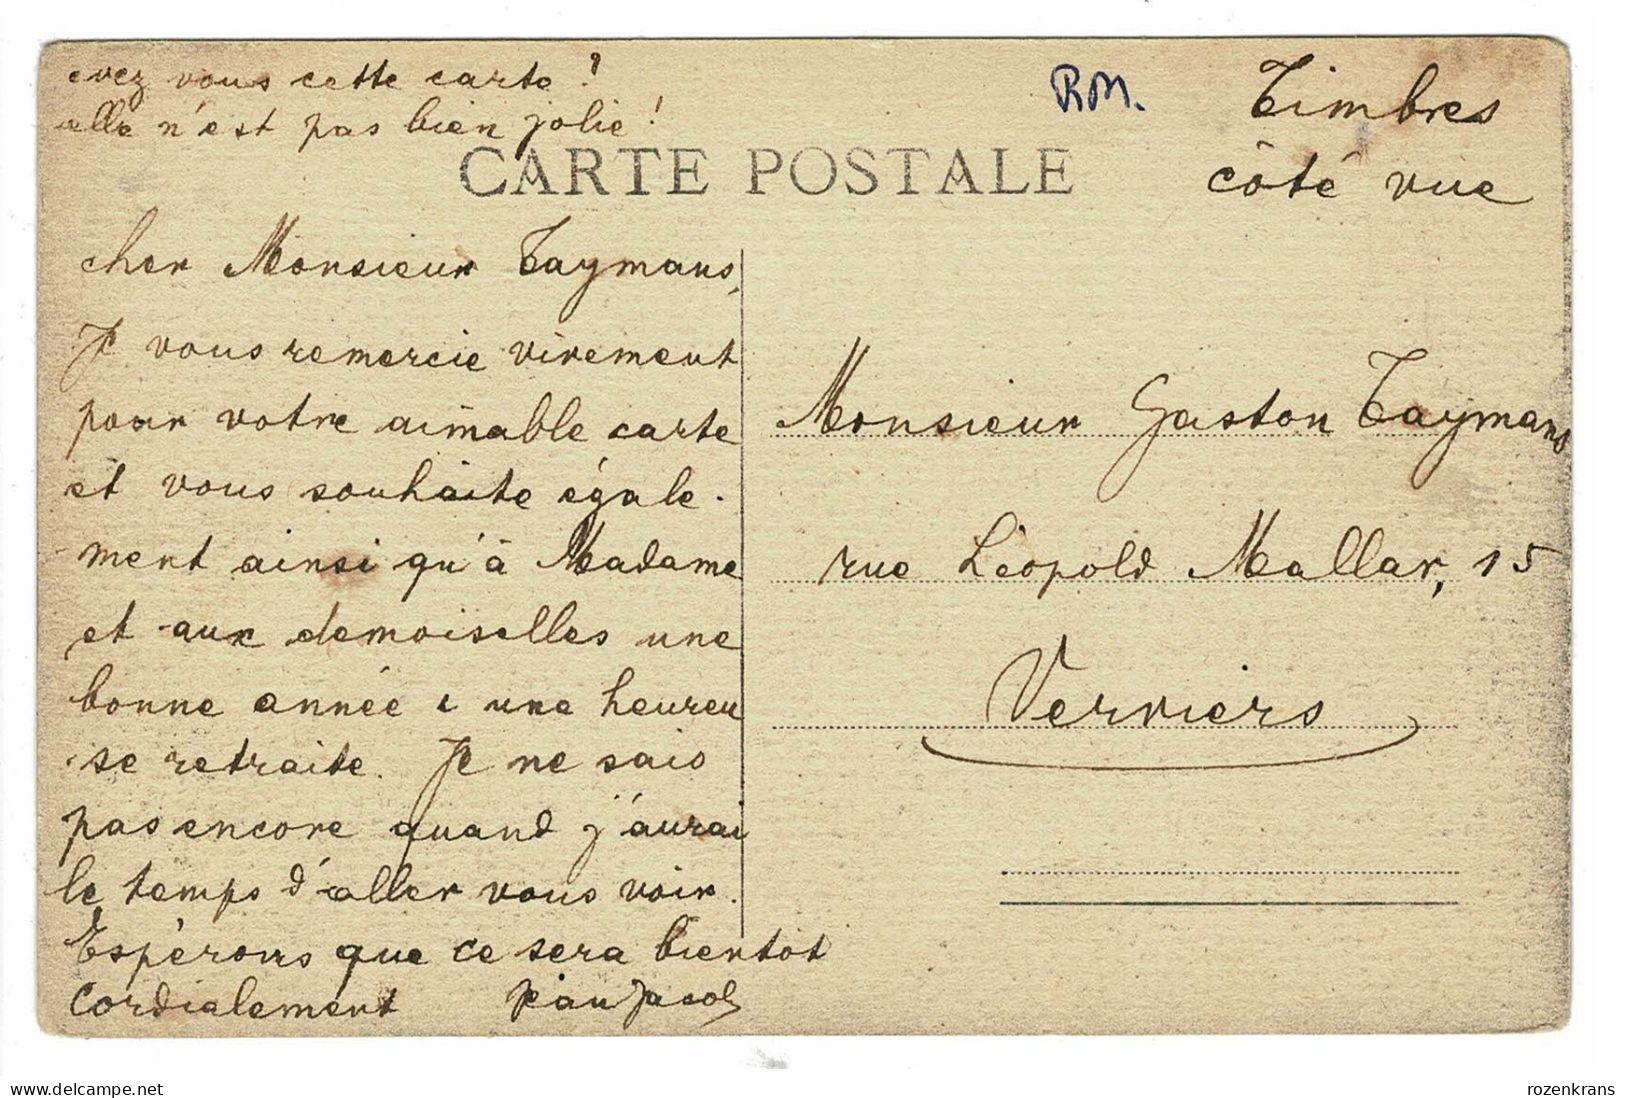 avez vous cette carte?
elle n'est pas bien jolie!
RM.
Timbres
côté vue
CARTE POSTALE
cher Monsieur Taymans,
Je vous remercie vivement
pour votre aimable carte
et vous souhaite égale-
ment ainsi qu'à Madame
et aux demoiselles une
bonne année & une heureu
se retraite. Je ne sais
pas encore quand j'aurai
le temps d'aller vous voir.
Espérons que ce sera bientot
cordialement Jean Jacob
Monsieur Gaston Taymans
rue Léopold Mallar, 15
Verviers
delcampe.net
rozenkrans